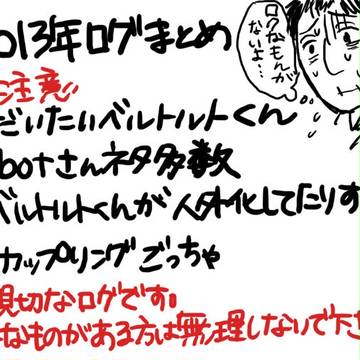 013年ログまとめ
ロクなもんが
ないよ…
注意
だいたいベルトルトくん
botさんネタ多数
ベルトルトくんが人外化してたりす
カップリングごっちゃ
親切なログです。
なものがある方は無理しないで下さ